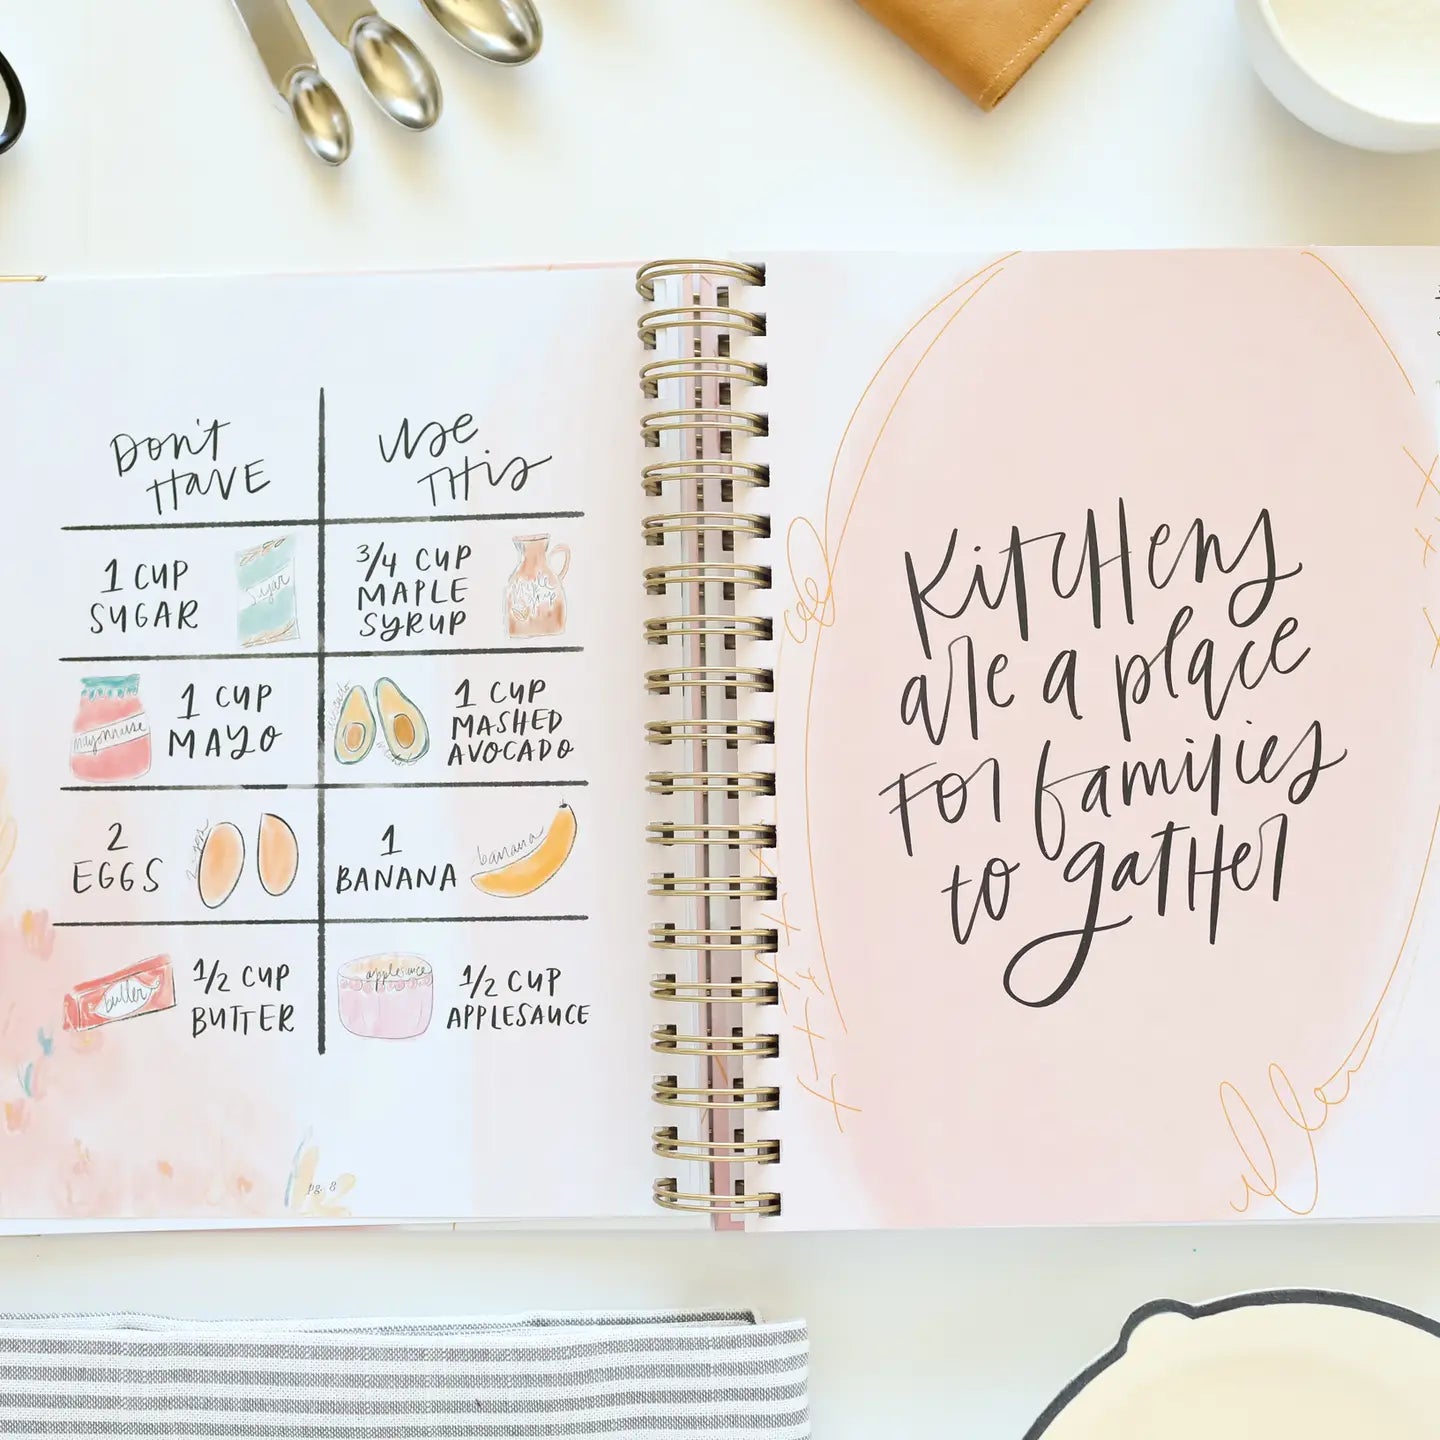 Don't
Have
Use
This
1 CUP
SUGAR
Sugar
3/4 CUP
MAPLE
SYRUP
Maple
mayonnaise
1 CUP
MAYO
avocado
1 CUP
MASHED
AVOCADO
2
EGGS
1
BANANA
banana
butter
1/2 CUP
BUTTER
applesauce
1/2 CUP
APPLESAUCE
pg. 8
Kitchens
are a place
For families
to gather